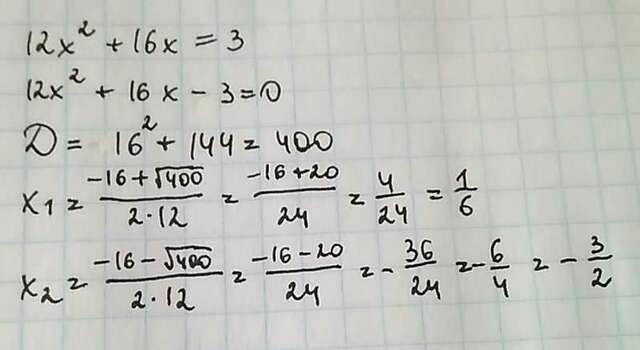 12x² + 16x = 3
12x² + 16x - 3 = 0
D = 16² + 144 = 400
x₁ = (-16 + √400)/(2·12) = (-16 + 20)/24 = 4/24 = 1/6
x₂ = (-16 - √400)/(2·12) = (-16 - 20)/24 = -36/24 = -6/4 = -3/2